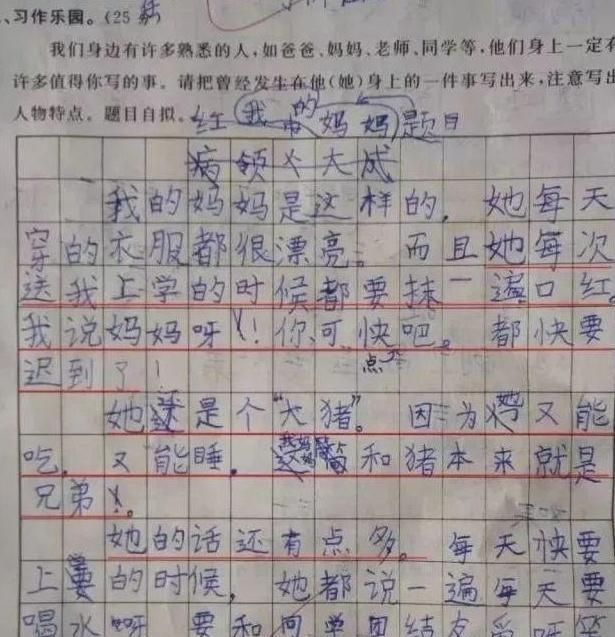 、习作乐园。(25
我们身边有许多熟悉的人,如爸爸、妈妈、老师、同学等,他们身上一定有
许多值得你写的事。请把曾经发生在他(她)身上的一件事写出来,注意写出
人物特点。题目自拟。
我的妈妈 题目
我的妈妈是这样的,她每天
穿的衣服都很漂亮。而且她每次
送我上学的时候都要抹一遍口红
我说妈妈呀!你可快点吧。都快要
迟到了!
她还是个“大猪”。因为她又能
吃,又能睡,和猪本来就是
兄弟。
她的话还有点多。每天快要
上学的时候,她都说一遍每天要
喝水呀要和同学团结友爱呀等